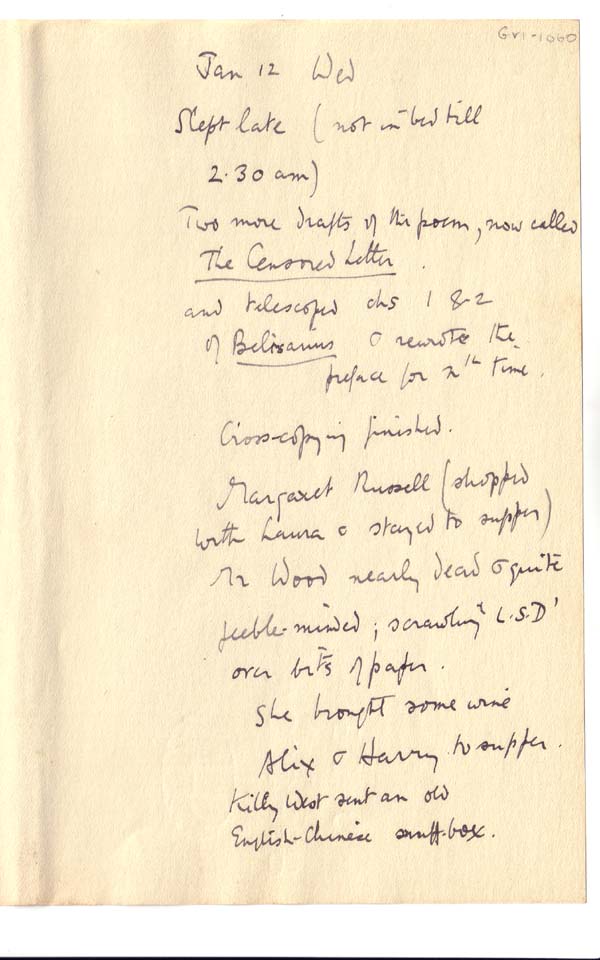 GVI-1060
Jan 12 Wed
Slept late (not in bed till
2.30 am)
Two more drafts of the poem, now called
The Censored Letter.
and telescoped chs 1 & 2
of Belisarius & rewrote the
preface for nth time.
Cross-copying finished.
Margaret Russell (shopped
with Laura & stayed to supper)
Mr Wood nearly dead & quite
feeble-minded; scrawling 'L.S.D'
over bits of paper.
She brought some wine
Alix & Harry to supper.
West sent an old
English-Chinese snuff-box.